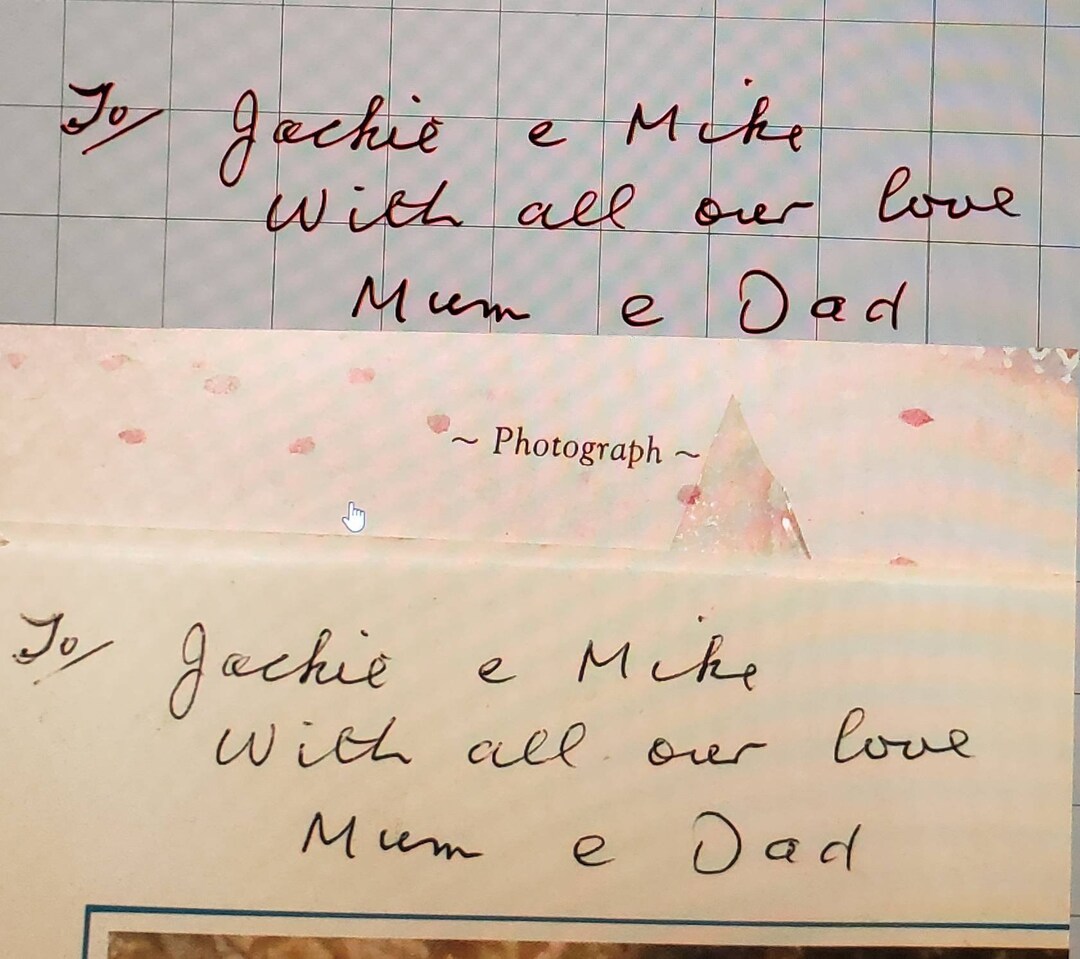 To/ Jackie e Mike
With all our love
Mum e Dad
~ Photograph ~
To/ Jackie e Mike
With all our love
Mum e Dad